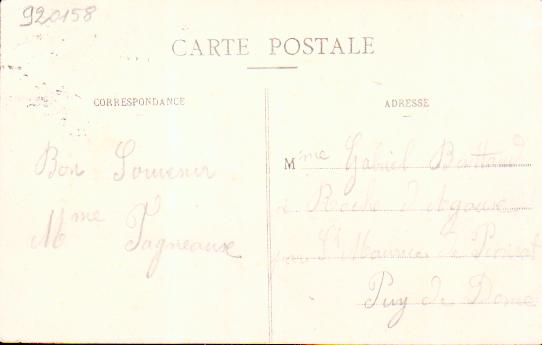 920158
CARTE POSTALE
CORRESPONDANCE
Bon Souvenir
Mme Fagneaux
ADRESSE
Mme Gabriel
à Roche d'Agoux
par St Maurice de Pionsat
Puy de Dome